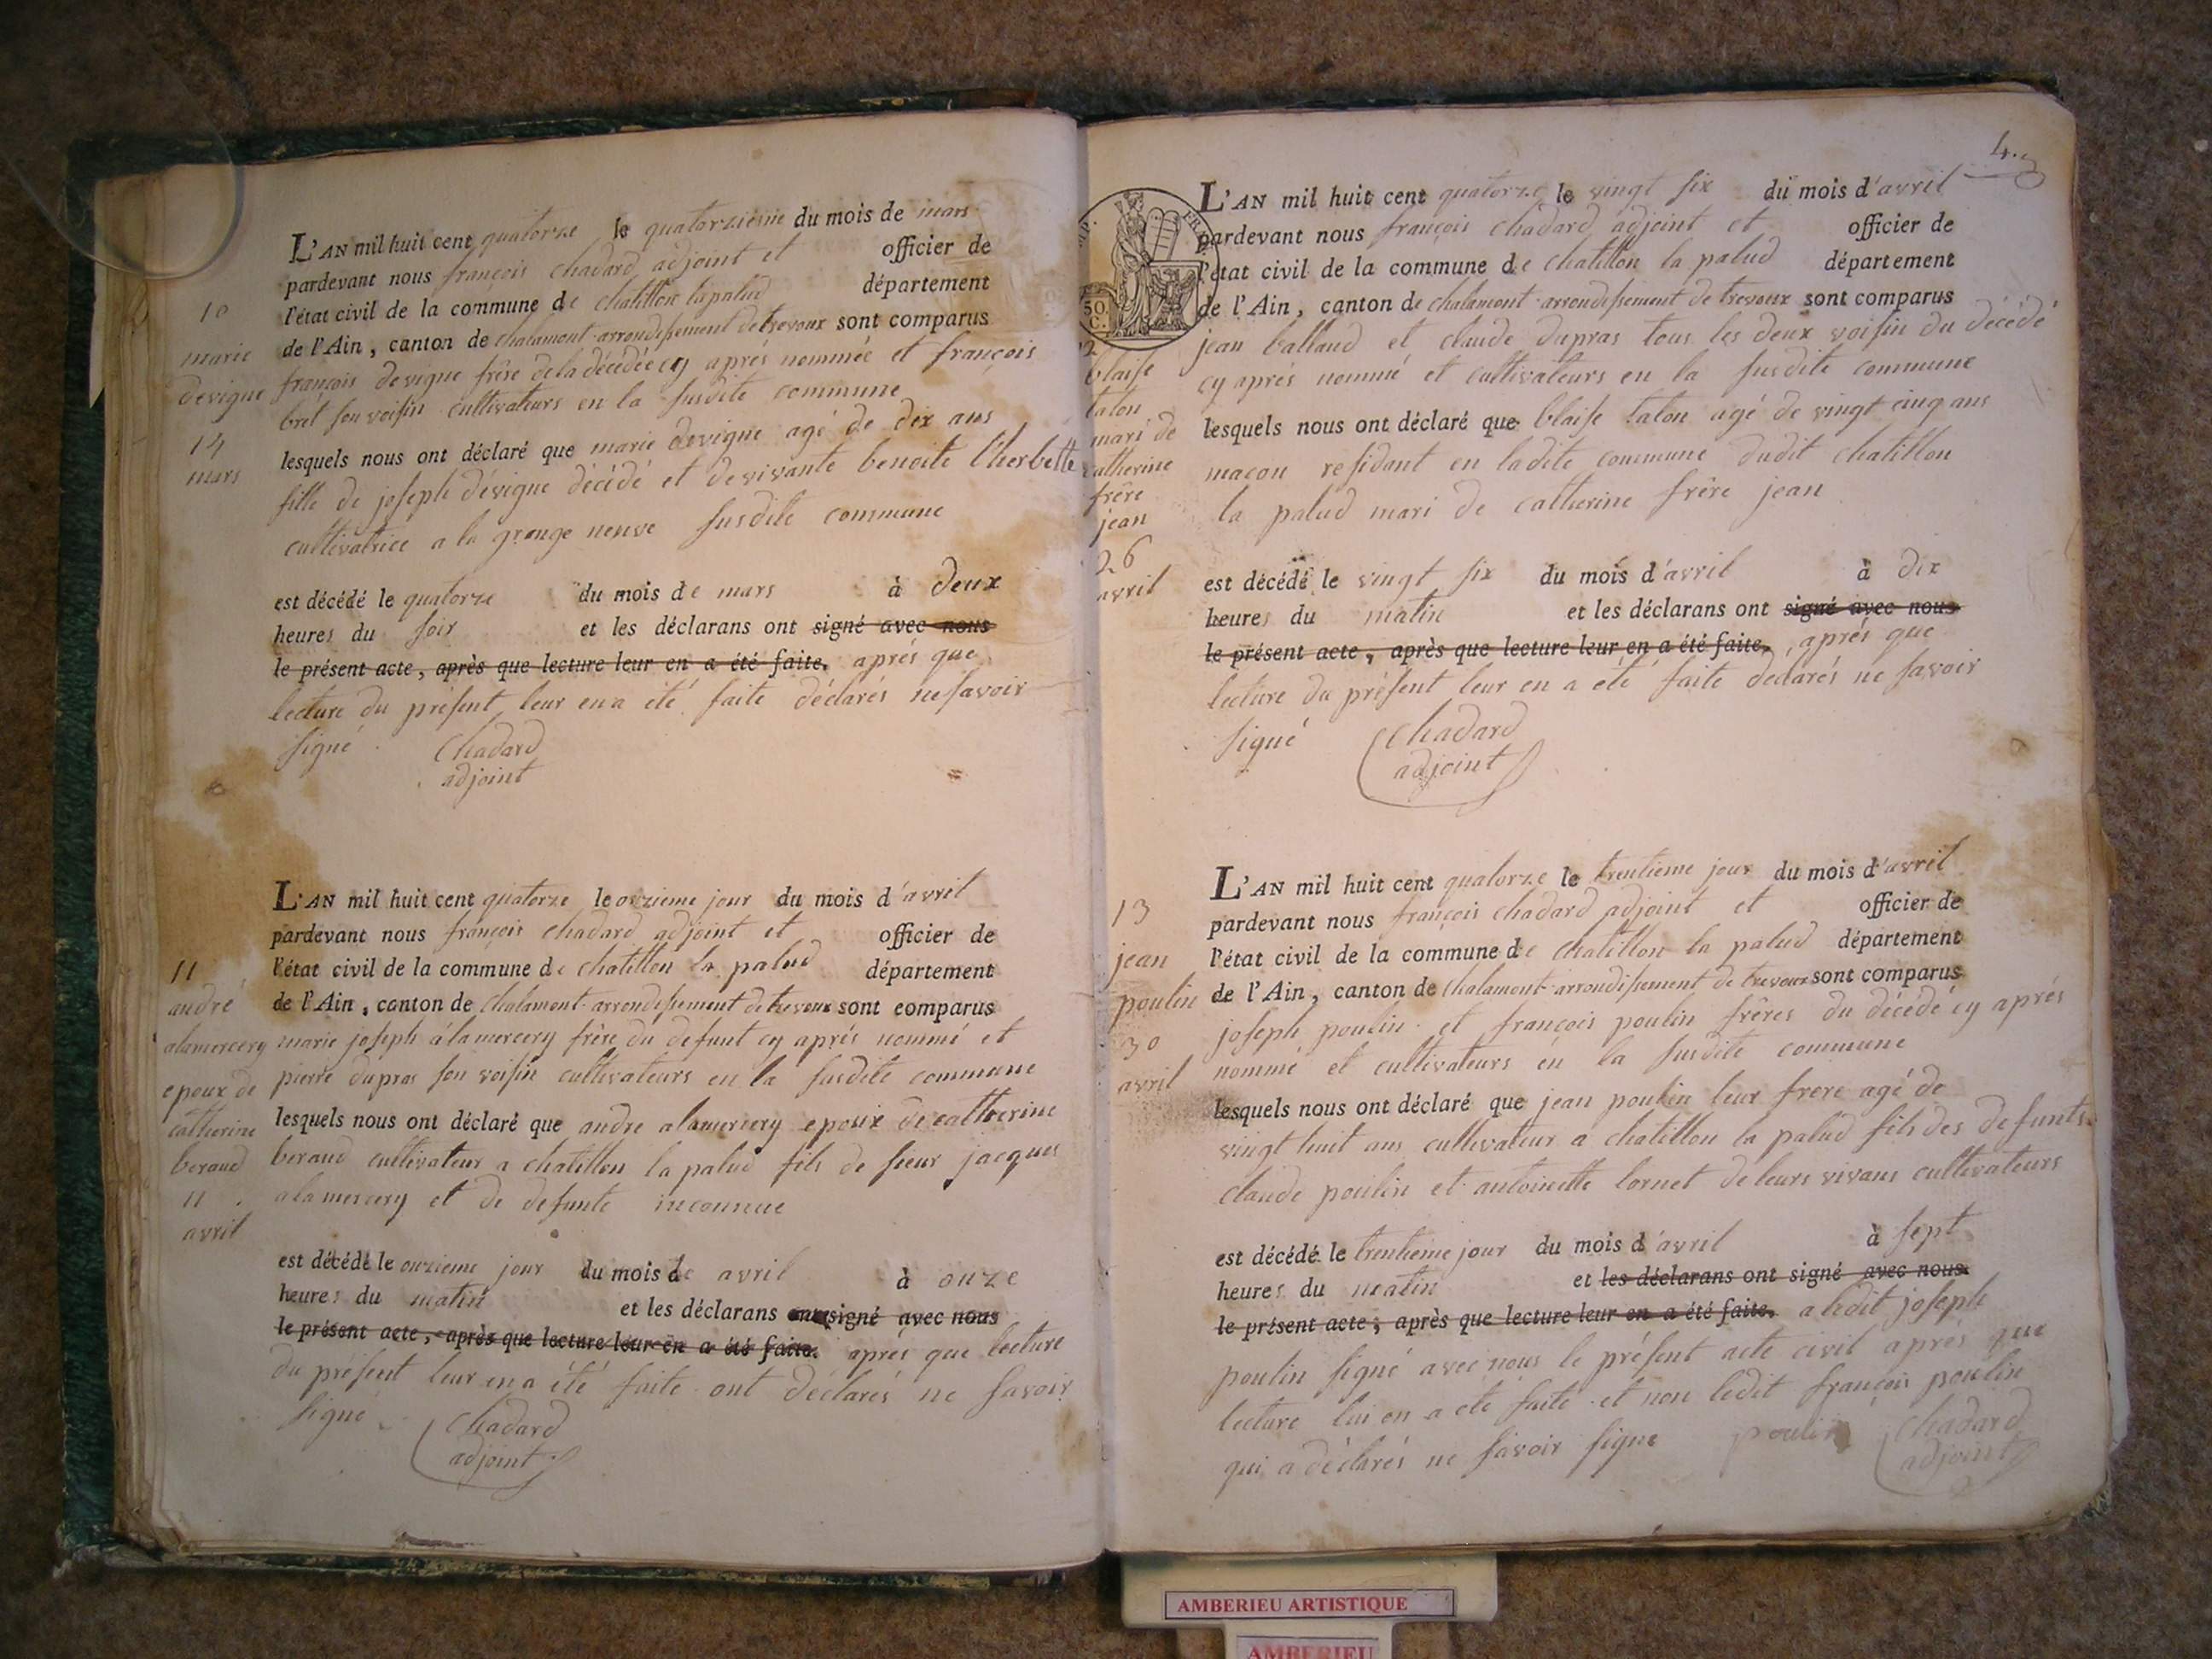 10
marie
devigne
14
mars
L'AN mil huit cent quatorze le quatorzieme du mois de mars
pardevant nous françois chadard adjoint et officier de
l'état civil de la commune de chatillon la palud département
de l'Ain, canton de chalamont arrondissement de trevoux sont comparus
françois devigne frère de la décédée cy après nommée et françois
bret son voisin cultivateurs en la susdite commune
lesquels nous ont déclaré que marie devigne agé de dix ans
fille de joseph dévigne décédé et de vivante benoite l'herbette
cultivatrice a la grange neuve susdite commune
est décédé le quatorze du mois de mars à deux
heures du soir et les déclarans ont signé avec nous
le présent acte, après que lecture leur en a été faite. aprés que
lecture du présent leur en a été faite déclarés ne savoir
signé
chadard
adjoint
11
andré
alamercery
epoux de
catherine
beraud
11
avril
L'AN mil huit cent quatorze le onzieme jour du mois d'avril
pardevant nous françois chadard adjoint et officier de
l'état civil de la commune de chatillon la palud département
de l'Ain, canton de chalamont arrondissement de trevoux sont comparus
marie joseph álamercery frère du defunt cy aprés nommé et
pierre dupras son voisin cultivateurs en la susdite commune
lesquels nous ont déclaré que andre alamercery epoux de catherine
beraud cultivateur a chatillon la palud fils de sieur jacques
alamercery et de defunte inconnue
est décédé le onzieme jour du mois de avril à onze
heures du matin et les déclarans ont signé avec nous
le présent acte, après que lecture leur en a été faite. aprés que lecture
du présent leur en a été faite ont déclarés ne savoir
signé
chadard
adjoint
4.
12
blaise
talon
mari de
catherine
frère
jean
26
avril
FR
50.
C.
L'AN mil huit cent quatorze le vingt six du mois d'avril
pardevant nous françois chadard adjoint et officier de
l'état civil de la commune de chatillon la palud département
de l'Ain, canton de chalamont arrondissement de trevoux sont comparus
jean balland et claude dupras tous les deux voisin du décédé
cy aprés nommé et cultivateurs en la susdite commune
lesquels nous ont déclaré que blaise talon agé de vingt cinq ans
maçon residant en ladite commune dudit chatillon
la palud mari de catherine frère jean
est décédé le vingt six du mois d'avril à dix
heures du matin et les déclarans ont signé avec nous
le présent acte, après que lecture leur en a été faite, aprés que
lecture du présent leur en a été faite déclarés ne savoir
signé
chadard
adjoint
13
jean
poulin
30
avril
L'AN mil huit cent quatorze le trentieme jour du mois d'avril
pardevant nous françois chadard adjoint et officier de
l'état civil de la commune de chatillon la palud département
de l'Ain, canton de chalamont arrondissement de trevoux sont comparus
joseph poulin et françois poulin frêres du décédé cy aprés
nommé et cultivateurs en la susdite commune
lesquels nous ont déclaré que jean poulin leur frere agé de
vingt huit ans cultivateur a chatillon la palud fils des defunts
claude poulin et antoinette lornet de leurs vivans cultivateurs
est décédé le trentieme jour du mois d'avril à sept
heures du matin et les déclarans ont signé avec nous
le présent acte, après que lecture leur en a été faite. a ledit joseph
poulin signé avec nous le présent acte civil aprés que
lecture lui en a été faite et non ledit françois poulin
qui a déclarés ne savoir signe
poulin
chadard
adjoint
AMBERIEU ARTISTIQUE
AMBERIEU